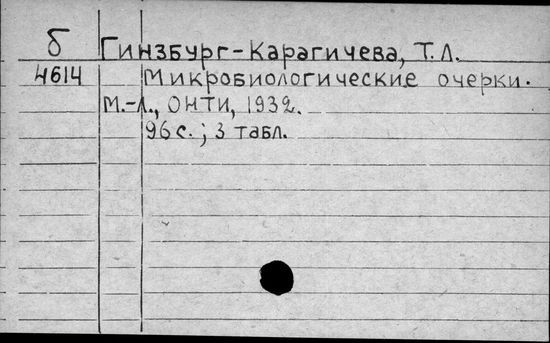 б Гинзбург-Карагичева, Т.Л.
4614 Микробиологические очерки.
М.-Л., ОНТИ, 1932.
96 с.; 3 табл.